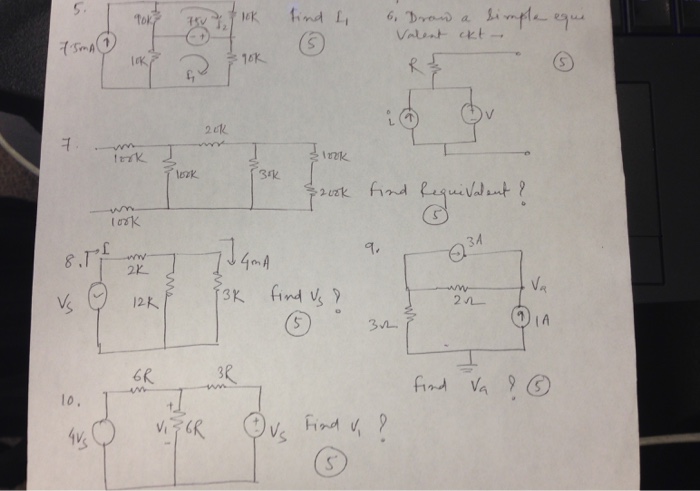 5.
90K
75V
I2
10K
find I1
5
7.5mA
10K
I1
90K
6. Draw a Simple equi
valent ckt →
5
R
i
V
7.
20K
100K
100K
100K
200K
find Requivalent ?
5
100K
8.
I
2K
4mA
Vs
12K
3K
find Vs ?
5
9.
3A
Va
2Ω
3Ω
1A
find Va ? 5
10.
6R
3R
4Vs
+
V1
-
6R
+
-
Vs
Find V1 ?
5